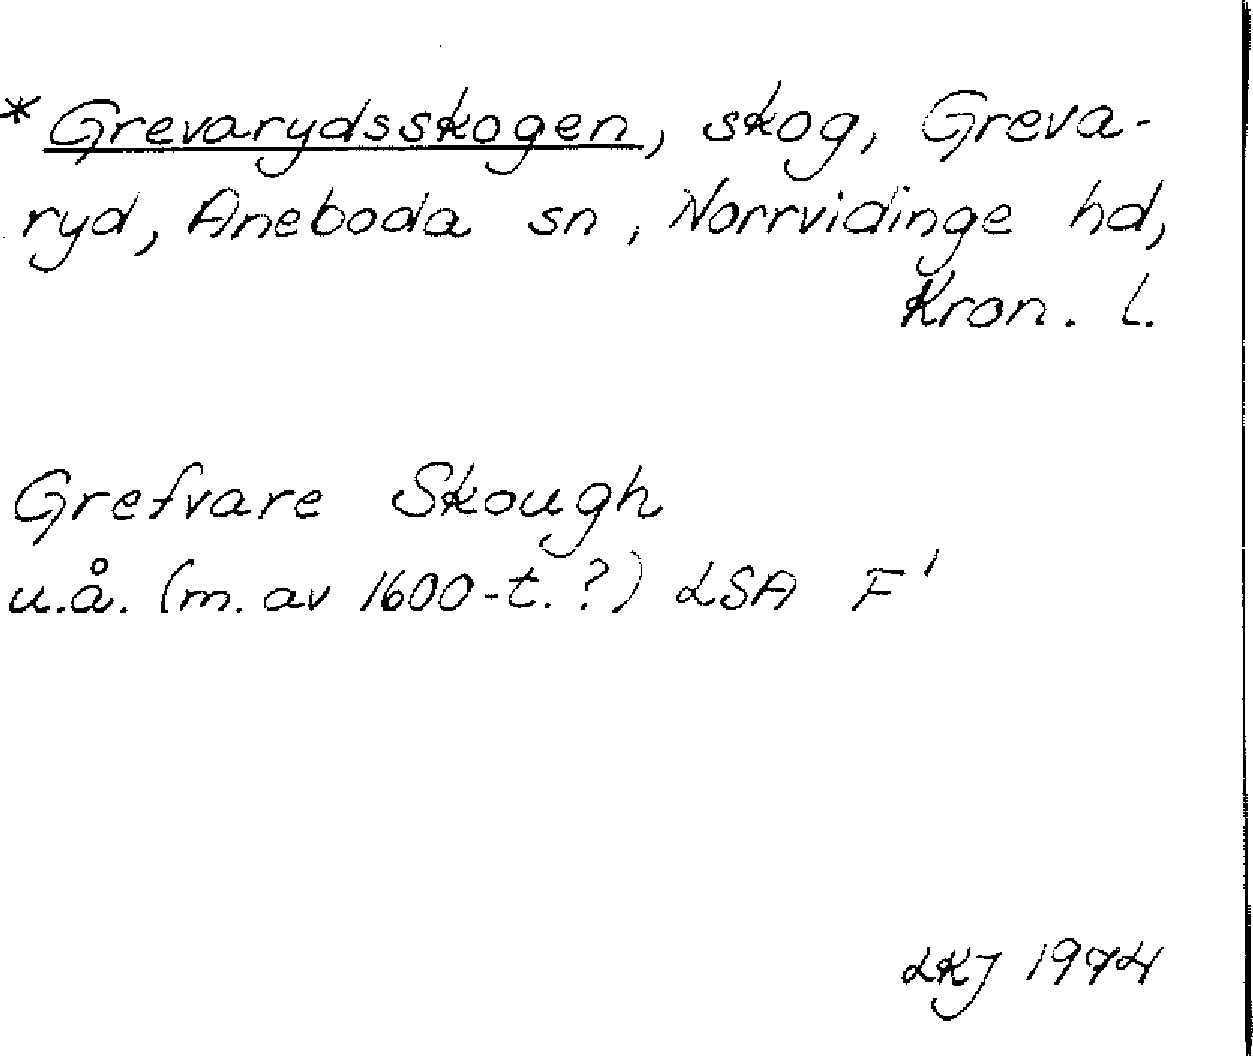 * Grevarydsskogen, skog, Greva-
ryd, Aneboda sn, Norrvidinge hd,
Kron. l.
Grefvare Skough
u.å. (m. av 1600-t. ?) LSA F¹
LKJ 1974